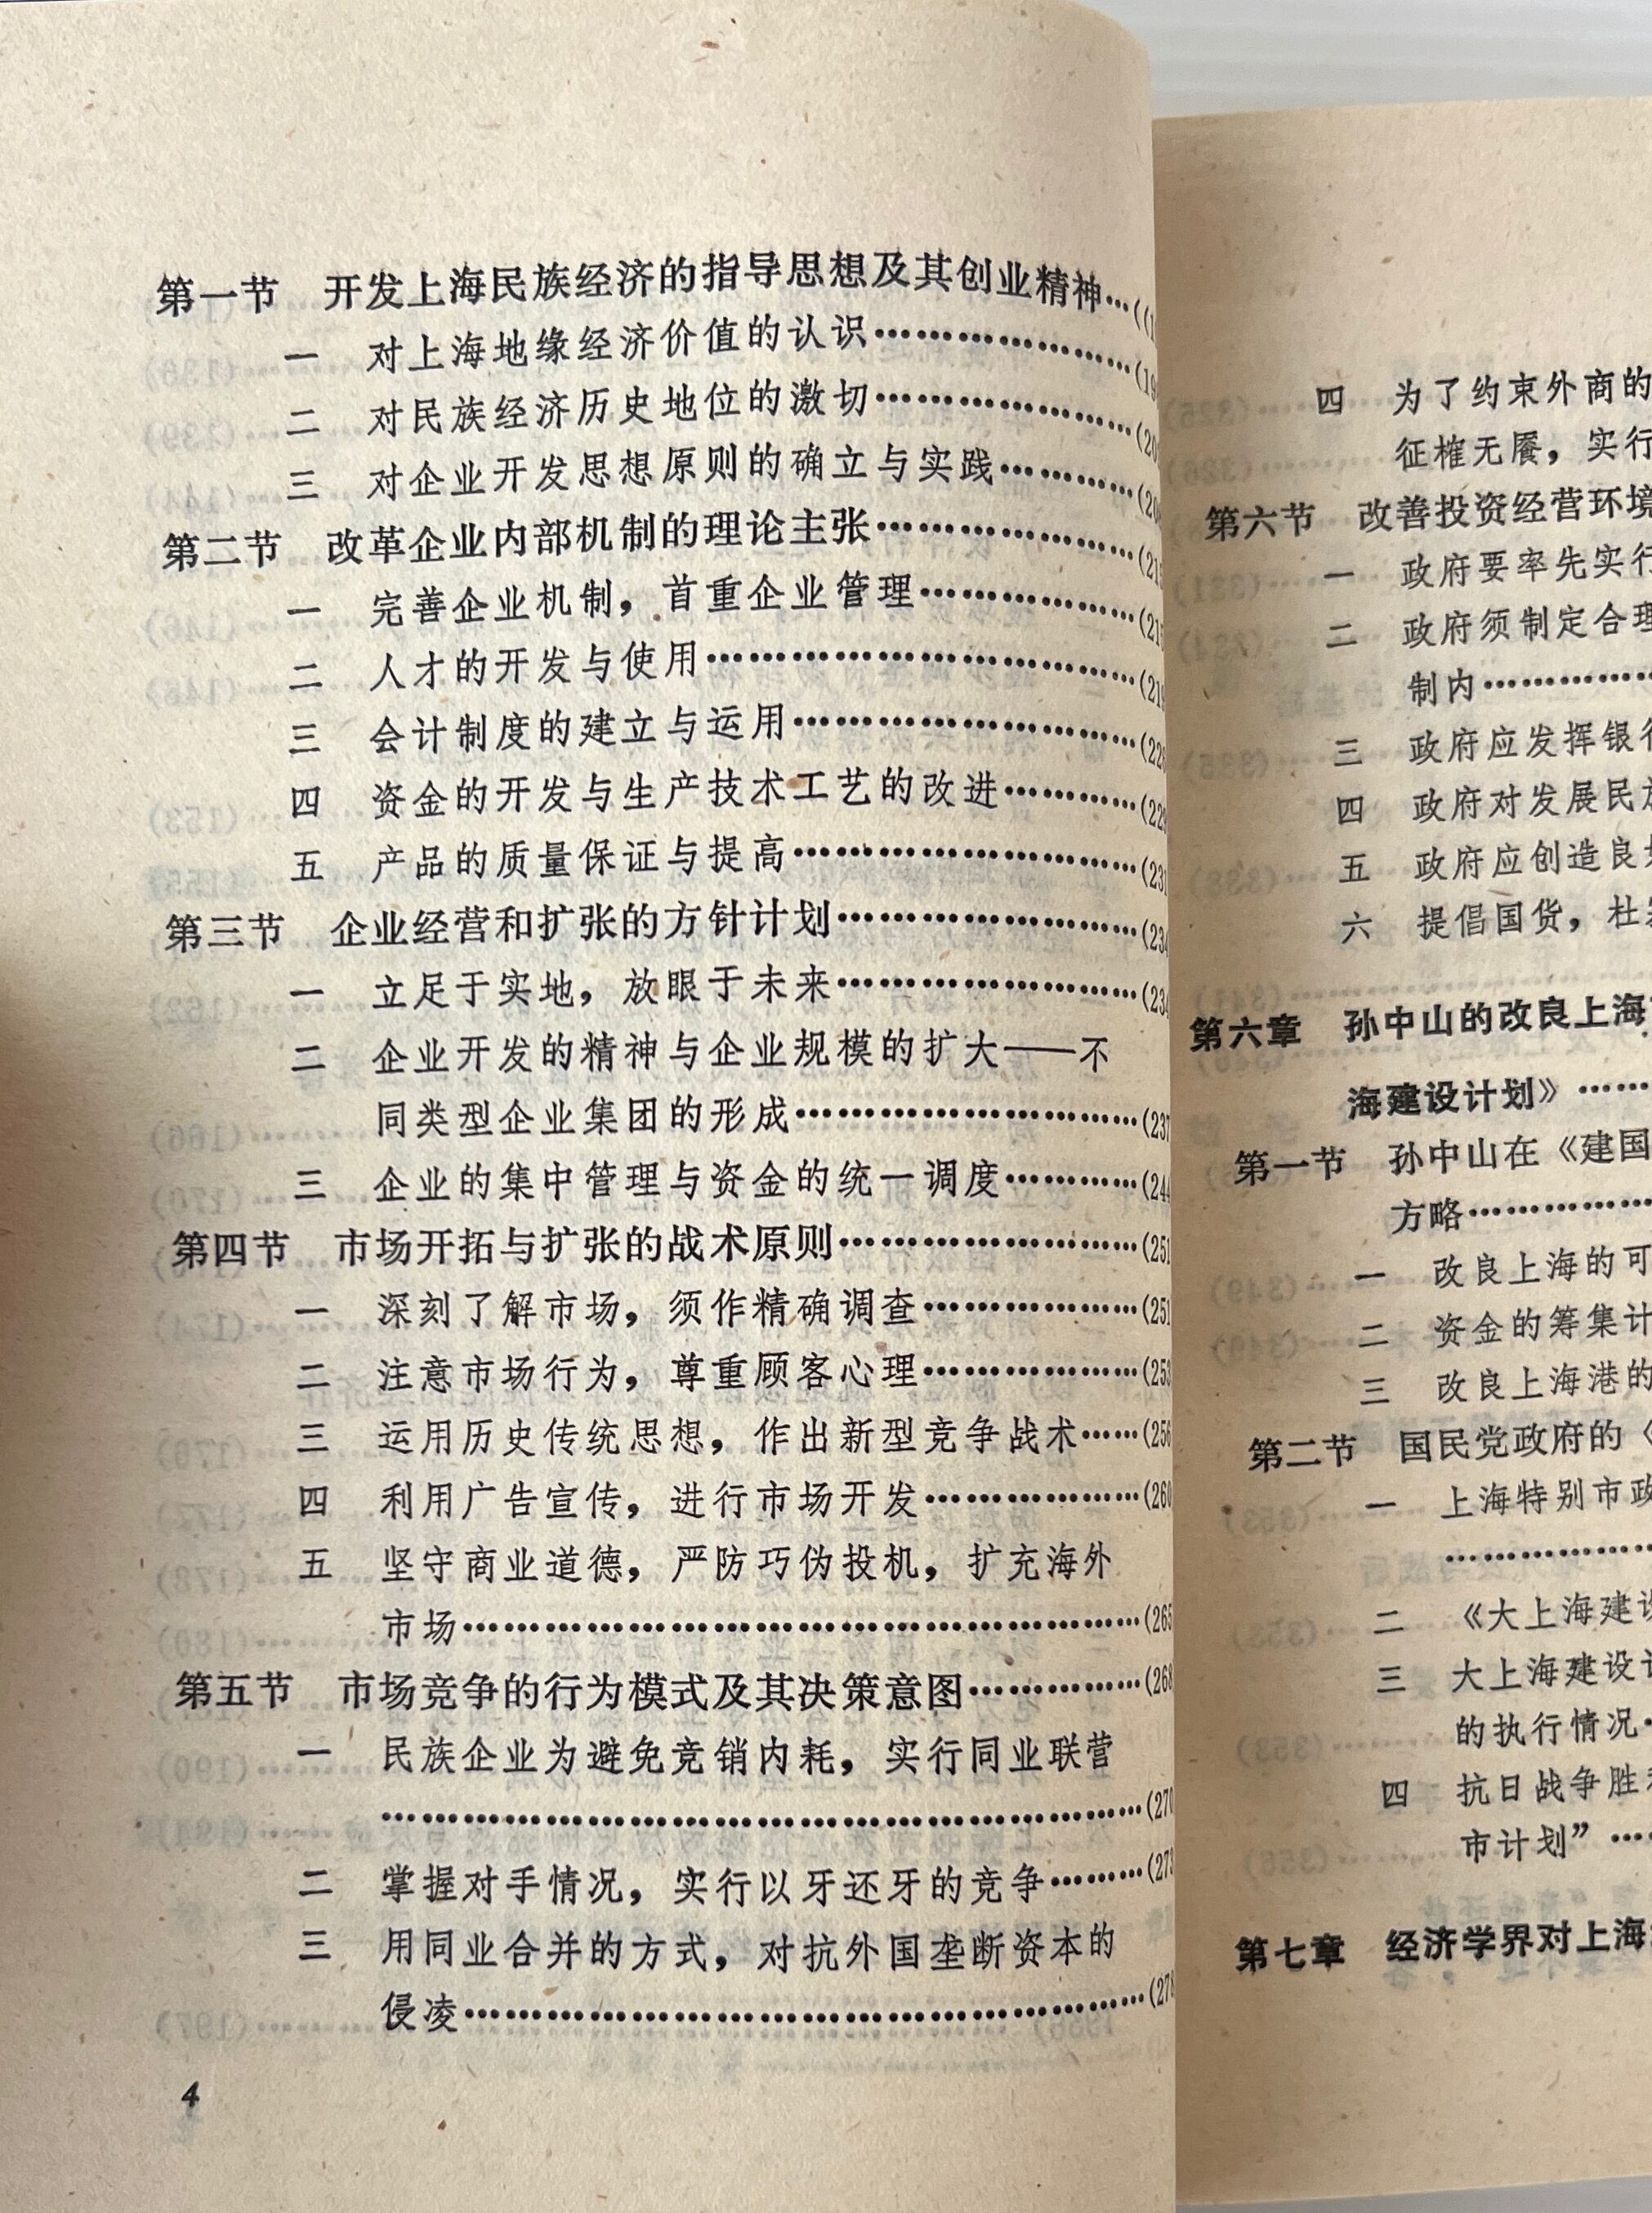 第一节 开发上海民族经济的指导思想及其创业精神…
一 对上海地缘经济价值的认识………………
二 对民族经济历史地位的激切………………
三 对企业开发思想原则的确立与实践…………
第二节 改革企业内部机制的理论主张………………
一 完善企业机制，首重企业管理………………
二 人才的开发与使用………………………………
三 会计制度的建立与运用………………………
四 资金的开发与生产技术工艺的改进…………
五 产品的质量保证与提高………………………(231
第三节 企业经营和扩张的方针计划…………………(234
一 立足于实地，放眼于未来……………………(234
二 企业开发的精神与企业规模的扩大——不
同类型企业集团的形成………………………(237
三 企业的集中管理与资金的统一调度…………(244
第四节 市场开拓与扩张的战术原则…………………(251
一 深刻了解市场，须作精确调查………………(251
二 注意市场行为，尊重顾客心理………………(253
三 运用历史传统思想，作出新型竞争战术……(256
四 利用广告宣传，进行市场开发………………(260
五 坚守商业道德，严防巧伪投机，扩充海外
市场………………………………………………(265
第五节 市场竞争的行为模式及其决策意图…………(268
一 民族企业为避免竞销内耗，实行同业联营
……………………………………………………(270
二 掌握对手情况，实行以牙还牙的竞争………(273
三 用同业合并的方式，对抗外国垄断资本的
侵凌………………………………………………(278
4
四 为了约束外商的
征榷无餍，实行
第六节 改善投资经营环境
一 政府要率先实行
二 政府须制定合理
制内……………
三 政府应发挥银行
四 政府对发展民族
五 政府应创造良
六 提倡国货，杜
第六章 孙中山的改良上海
海建设计划》……
第一节 孙中山在《建国
方略……………
一 改良上海的可
二 资金的筹集计
三 改良上海港的
第二节 国民党政府的《
一 上海特别市政
………………
二 《大上海建设
三 大上海建设计
的执行情况…
四 抗日战争胜利
市计划”…
第七章 经济学界对上海